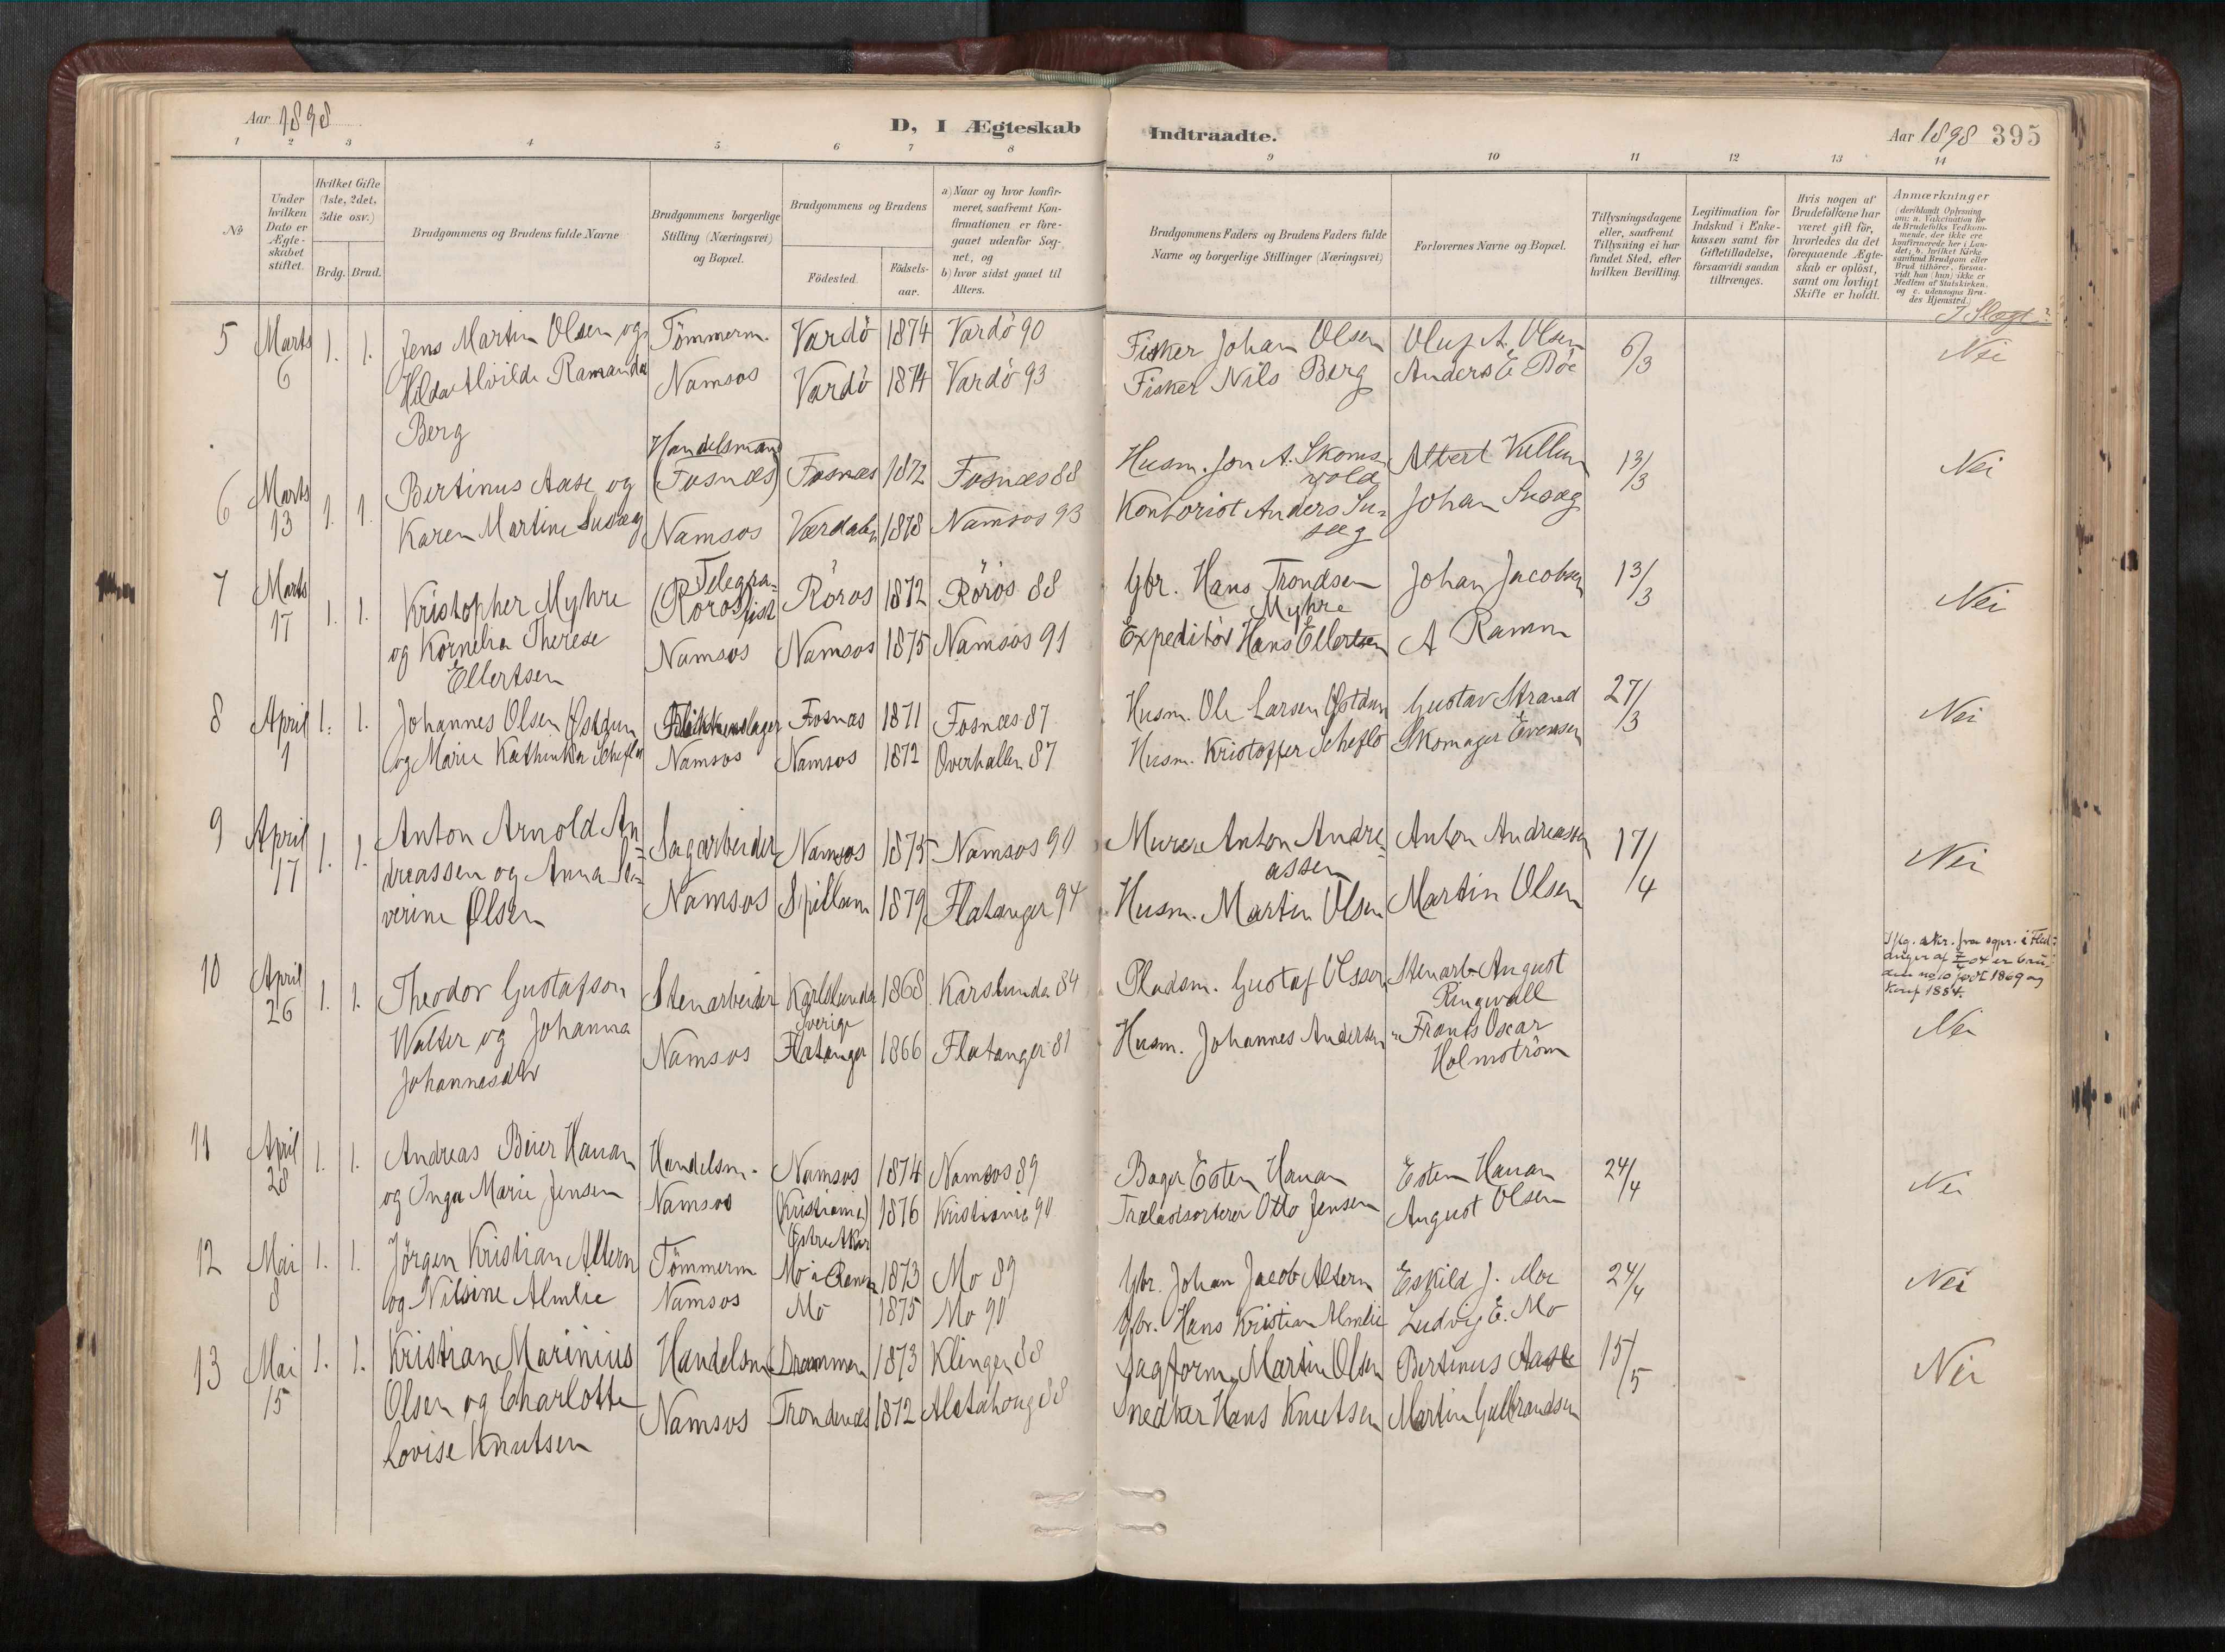 Aar 1898
D, I Ægteskab Indtraadte.
Aar 1898 395
1 2 3 4 5 6 7 8 9 10 11 12 13 14
No
Under hvilken Dato er Ægteskabet stiftet.
Hvilket Gifte (1ste, 2det, 3die osv.)
Brdg. Brud.
Brudgommens og Brudens fulde Navne
Brudgommens borgerlige Stilling (Næringsvei) og Bopæl.
Brudgommens og Brudens
Födested. Födsels-aar.
a) Naar og hvor konfirmeret, saafremt Konfirmationen er foregaaet udenfor Sognet, og
b) hvor sidst gaaet til Alters.
Brudgommens Faders og Brudens Faders fulde Navne og borgerlige Stillinger (Næringsvei)
Forlovernes Navne og Bopæl.
Tillysningsdagene eller, saafremt Tillysning ei har fundet Sted, efter hvilken Bevilling.
Legitimation for Indskud i Enkekassen samt for Giftetilladelse, forsaavidt saadan tiltrænges.
Hvis nogen af Brudefolkene har været gift för, hvorledes da det foregaaende Ægteskab er oplöst, samt om lovligt Skifte er holdt.
Anmærkninger
(deriblandt Oplysning om: a. Vakcination for de Brudefolks Vedkommende, der ikke ere konfirmerede her i Landet; b. hvilket Kirkesamfund Brudgom eller Brud tilhörer, forsaavidt han (hun) ikke er Medlem af Statskirken, og c. udensogns Brudes Hjemsted.)
I Slægt?
5 Marts 1. 1. Jens Martin Olsen og Tömmerm. Vardö 1874 Vardö 90 Fisker Johan Olsen Oluf A. Olsen 6/3 Nei
6 Hilda Alvilde Ramanda Namsos Vardö 1874 Vardö 93 Fisker Nils Berg Anders E Böe
Berg
Handelsmand
6 Marts 1. 1. Bertinus Aase og (Fosnæs) Fosnæs 1872 Fosnæs 88 Husm. Jon A. Skomsvold Albert Kullum 13/3 Nei
13 Karen Martine Susæg Namsos Værdalen 1878 Namsos 93 Kontorist Anders Susæg Johan Susæg
Telegrafist
7 Marts 1. 1. Kristopher Myhre (Röros) Röros 1872 Röros 88 Gbr. Hans Trondsen Myhre Johan Jacobsen 13/3 Nei
17 og Kornelia Therese Namsos Namsos 1875 Namsos 91 Expeditör Hans Ellertsen A Ramm
Ellertsen
8 April 1. 1. Johannes Olsen Östdun Fosnæs 1871 Fosnæs 87 Husm. Ole Larsen Östdun Gustav Strand 27/3 Nei
1 og Marie Kathinka Scheflo Namsos Namsos 1872 Overhallen 87 Husm. Kristoffer Scheflo Skomager Evensen
9 April 1. 1. Anton Arnold An= Sagarbeider Namsos 1875 Namsos 90 Murer Anton Andre=assen Anton Andreassen 17/4 Nei
17 dreassen og Anna Se= Namsos Spillum 1879 Flatanger 94 Husm. Martin Olsen Martin Olsen
verine Olsen
Iflg. skr. fra sgpr. i Flat=
anger af 7/4 04 er bru=
den no. 10 födt 1869 og
konf 1884.
10 April 1. 1. Theodor Gustafson Stenarbeider Karlslunda Sverige 1868 Karslunda 84 Pladsm. Gustaf Olsson Stenarb. August Ringwall
26 Walter og Johanna Namsos Flatanger 1866 Flatanger 81 Husm. Johannes Andersen " Frants Oscar Holmström Nei
Johannesdtr
11 April 1. 1. Andreas Beier Hauan Handelsm. Namsos 1874 Namsos 89 Bager Esten Hauan Esten Hauan 24/4 Nei
28 og Inga Marie Jensen Namsos (Kristiania) Östre Aker 1876 Kristiania 90 Trælastsorterer Otto Jensen August Olsen
12 Mai 1. 1. Jörgen Kristian Altern Tömmerm Mo i Ranen 1873 Mo 89 Gbr. Johan Jacob Altern Eskild J. Moe 24/4 Nei
8 og Nilsine Almlie Namsos Mo 1875 Mo 90 Gbr. Hans Kristian Almlie Ludvig E. Mo
13 Mai 1. 1. Kristian Marinius Handelsm Drammen 1873 Klingen 88 Sagform. Martin Olsen Bertinus Aase 15/5 Nei
15 Olsen og Charlotte Namsos Trondenæs 1872 Alstahoug 88 Snedker Hans Knutsen Martin Gulbrandsen
Lovise Knutsen